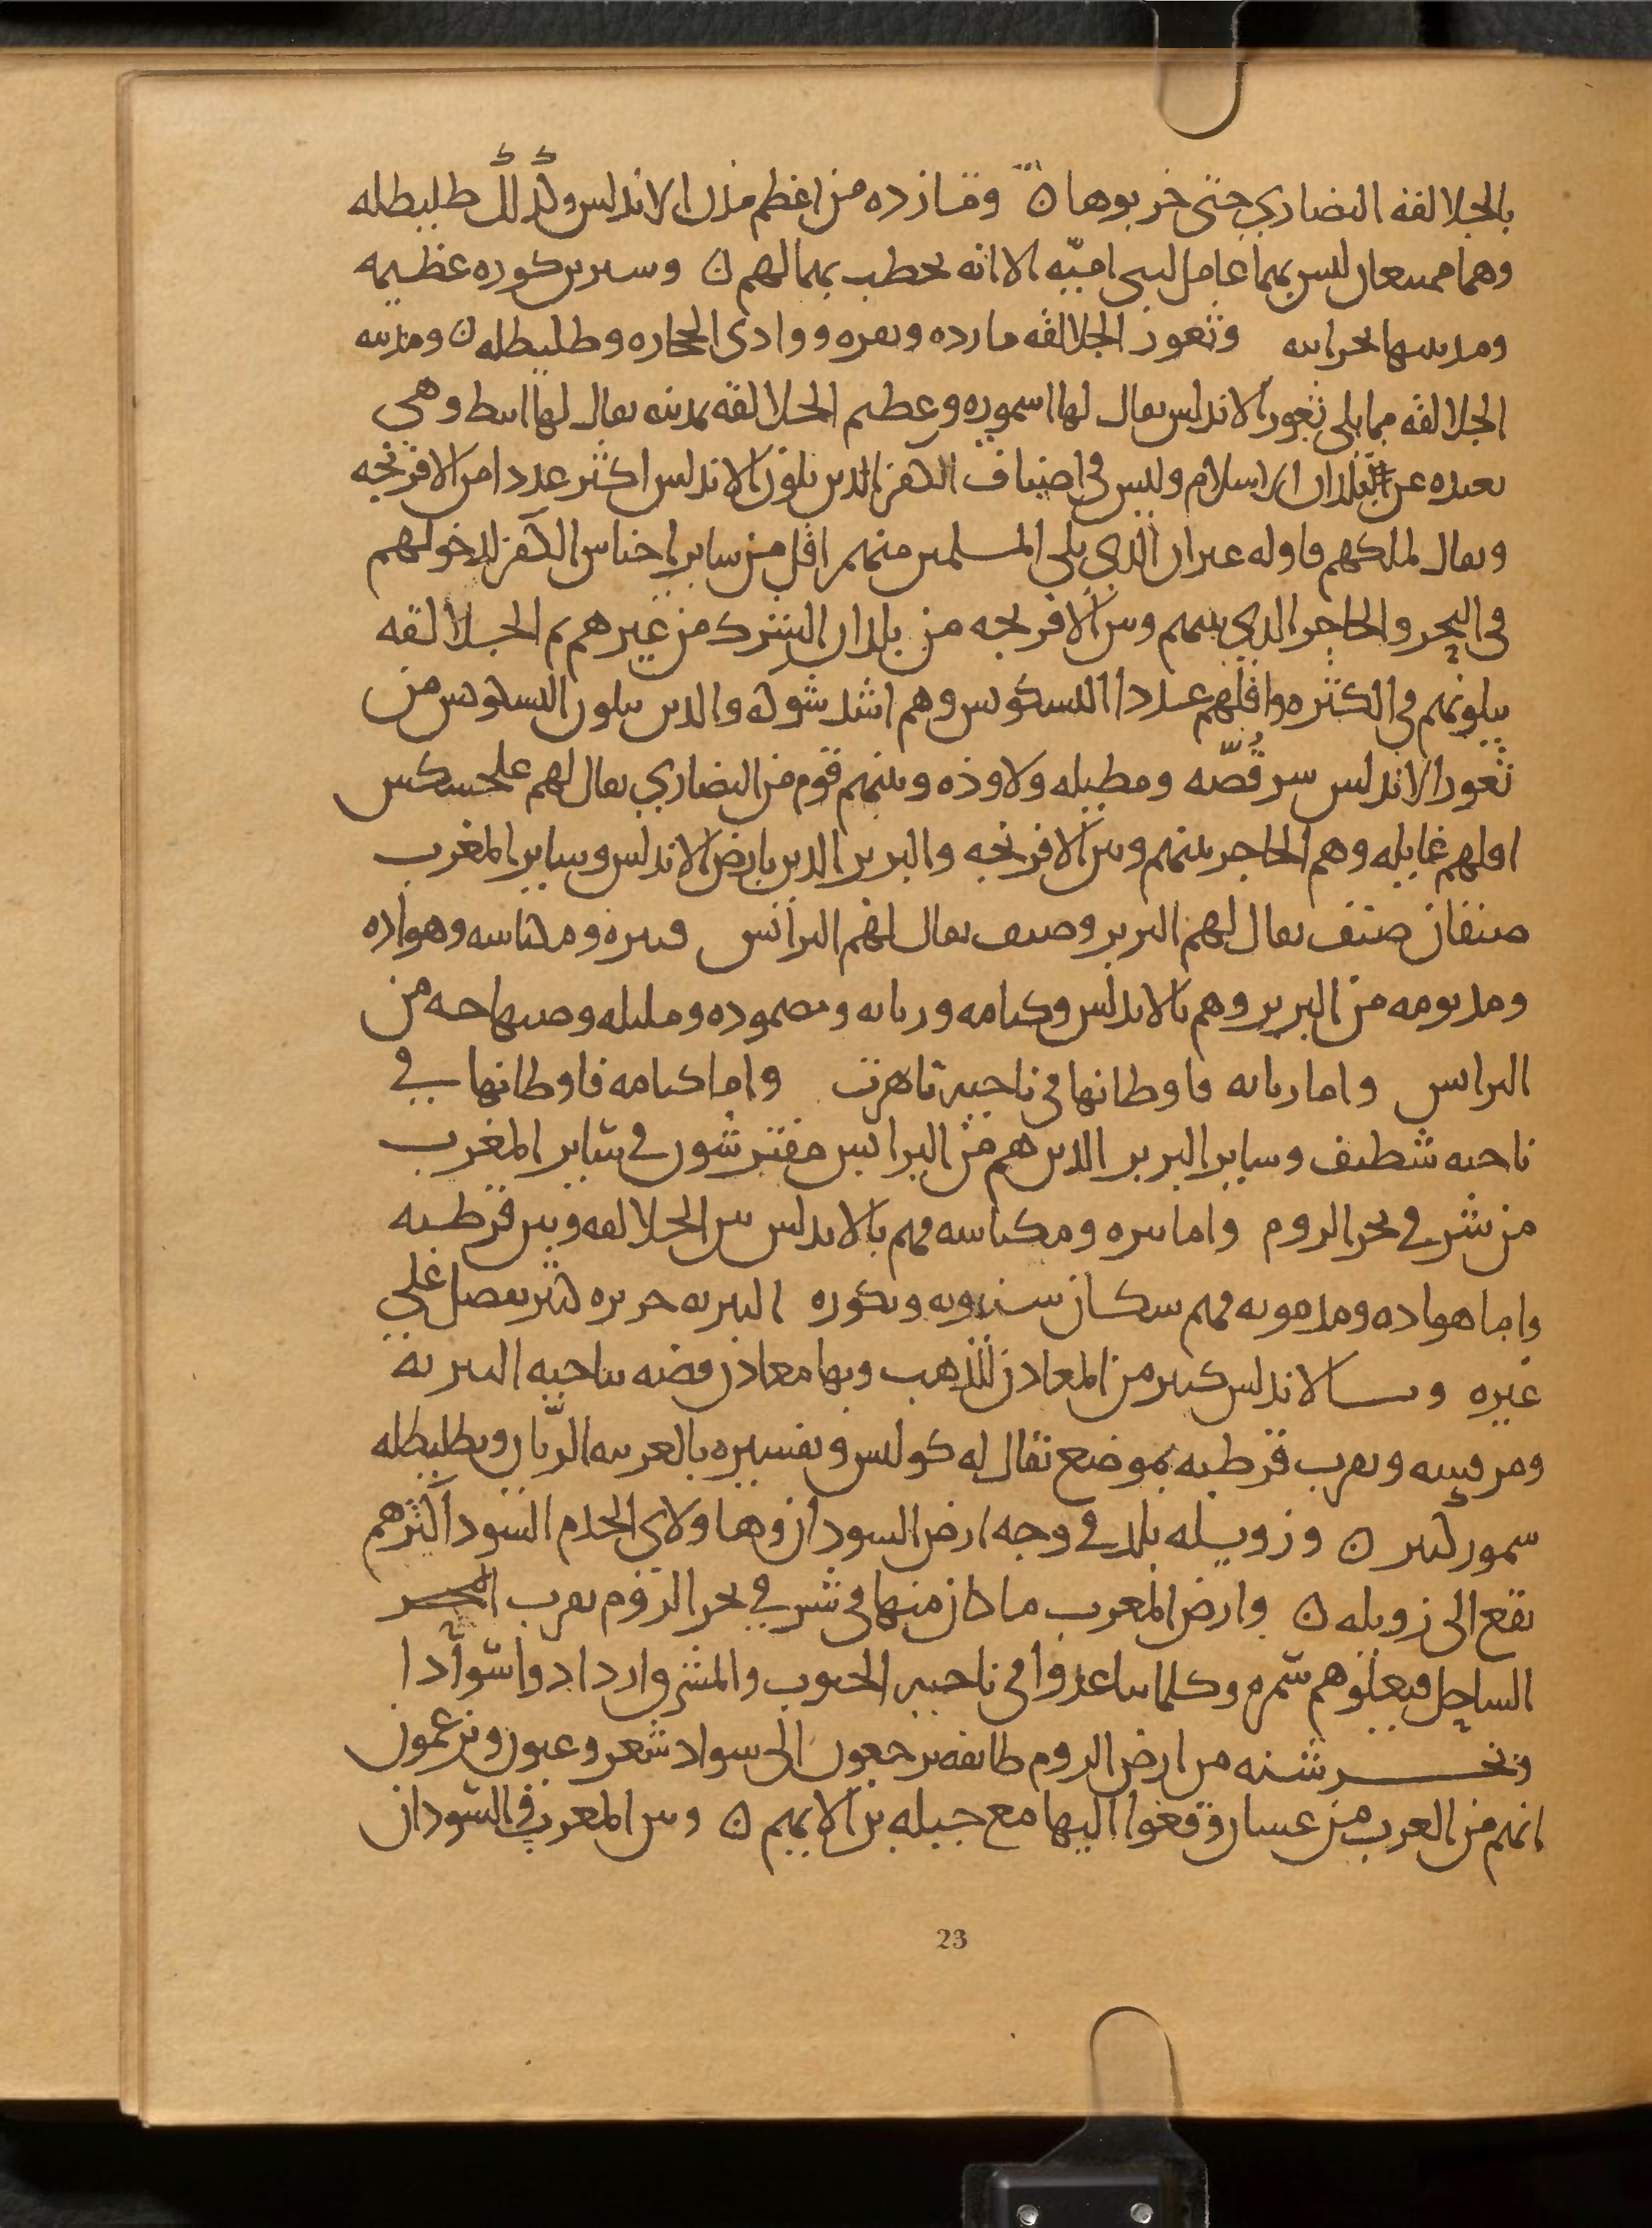 بالجلالقه النصاري حتى خربوها ن ومازده من اعظم مدن الاندلس وكذلك طليطله
وهما ممتنعان ليس بهما عامل لبني اميّه الا انه يخطب بهما لهم ن وسنترين كوره عظيمه
ومدينتها وثغور الجلالقه مارده ونفزه ووادى الحجاره وطليطله ن ومدينه
الجلالقه مما يلي ثغور الاندلس يقال لها اسموره وعظيم الجلالقه بمدينه يقال لها ابيط وهي
بعيده عن بلدان الاسلام وليس في اصناف الكفر الذين يلون الاندلس اكثر عددا من الافرنجه
ويقال لملكهم قاوله غير ان الذي يلي المسلمين منهم اقل من ساير اجناس الكفر لدخولهم
في البحر والحاجز الذي بينهم وبين الافرنجه من بلدان الشرك من غيرهم ثم الجلالقه
يلونهم في الكثره واقلهم عددا البسكونس وهم اشد شوكه والذين يلون البسكونس من
ثغور الاندلس سرقُصّه وتطيله ولاوذه وبينهم قوم من النصاري يقال لهم علجسكس
اقلهم غايله وهم الحاجز بينهم وبين الافرنجه والبربر الذين بارض الاندلس وساير المغرب
صنفان صنف يقال لهم البتر وصنف يقال لهم البرانس فنفزه ومكناسه وهواره
ومديونه من البتر وهم بالاندلس وكتامه وزناته ومصموده ومليله وصنهاجه من
البرانس واما زناته فاوطانها في ناحيه تاهرت واما كتامه فاوطانها في
ناحيه شطيف وساير البربر الذين هم من البرانس مفترشون في ساير المغرب
من شرقي بحر الروم واما نفزه ومكناسه فهم بالاندلس بين الجلالقه وبين قرطبه
واما هواده ومديونه فهم سكان سنتريه وبكوره البيره حرير كثير يفضل على
غيره وبالاندلس كثير من المعادن للذهب وبها معادن فضه بناحيه البيره
ومرسيه وبقرب قرطبه بموضع يقال له كولس وتفسيره بالعربيه وبطليطله
سمور كثير ن وزويله بلد في وجه ارض السودان وهاولاى الخدم السود اكثرهم
تقع الى زويله ن وارض المغرب ما كان منها في شرقي بحر الروم بقرب
الساحل فتعلوهم سمره وكلما تباعدوا في ناحيه الجنوب والمشرق ازدادوا سوادا
وبخرشنه من ارض الروم طايفه يرجعون الى سواد شعر وعيون ويزعمون
انهم من العرب من غسان وقعوا اليها مع جبله بن الايهم ن وبين المغرب في السودان
23